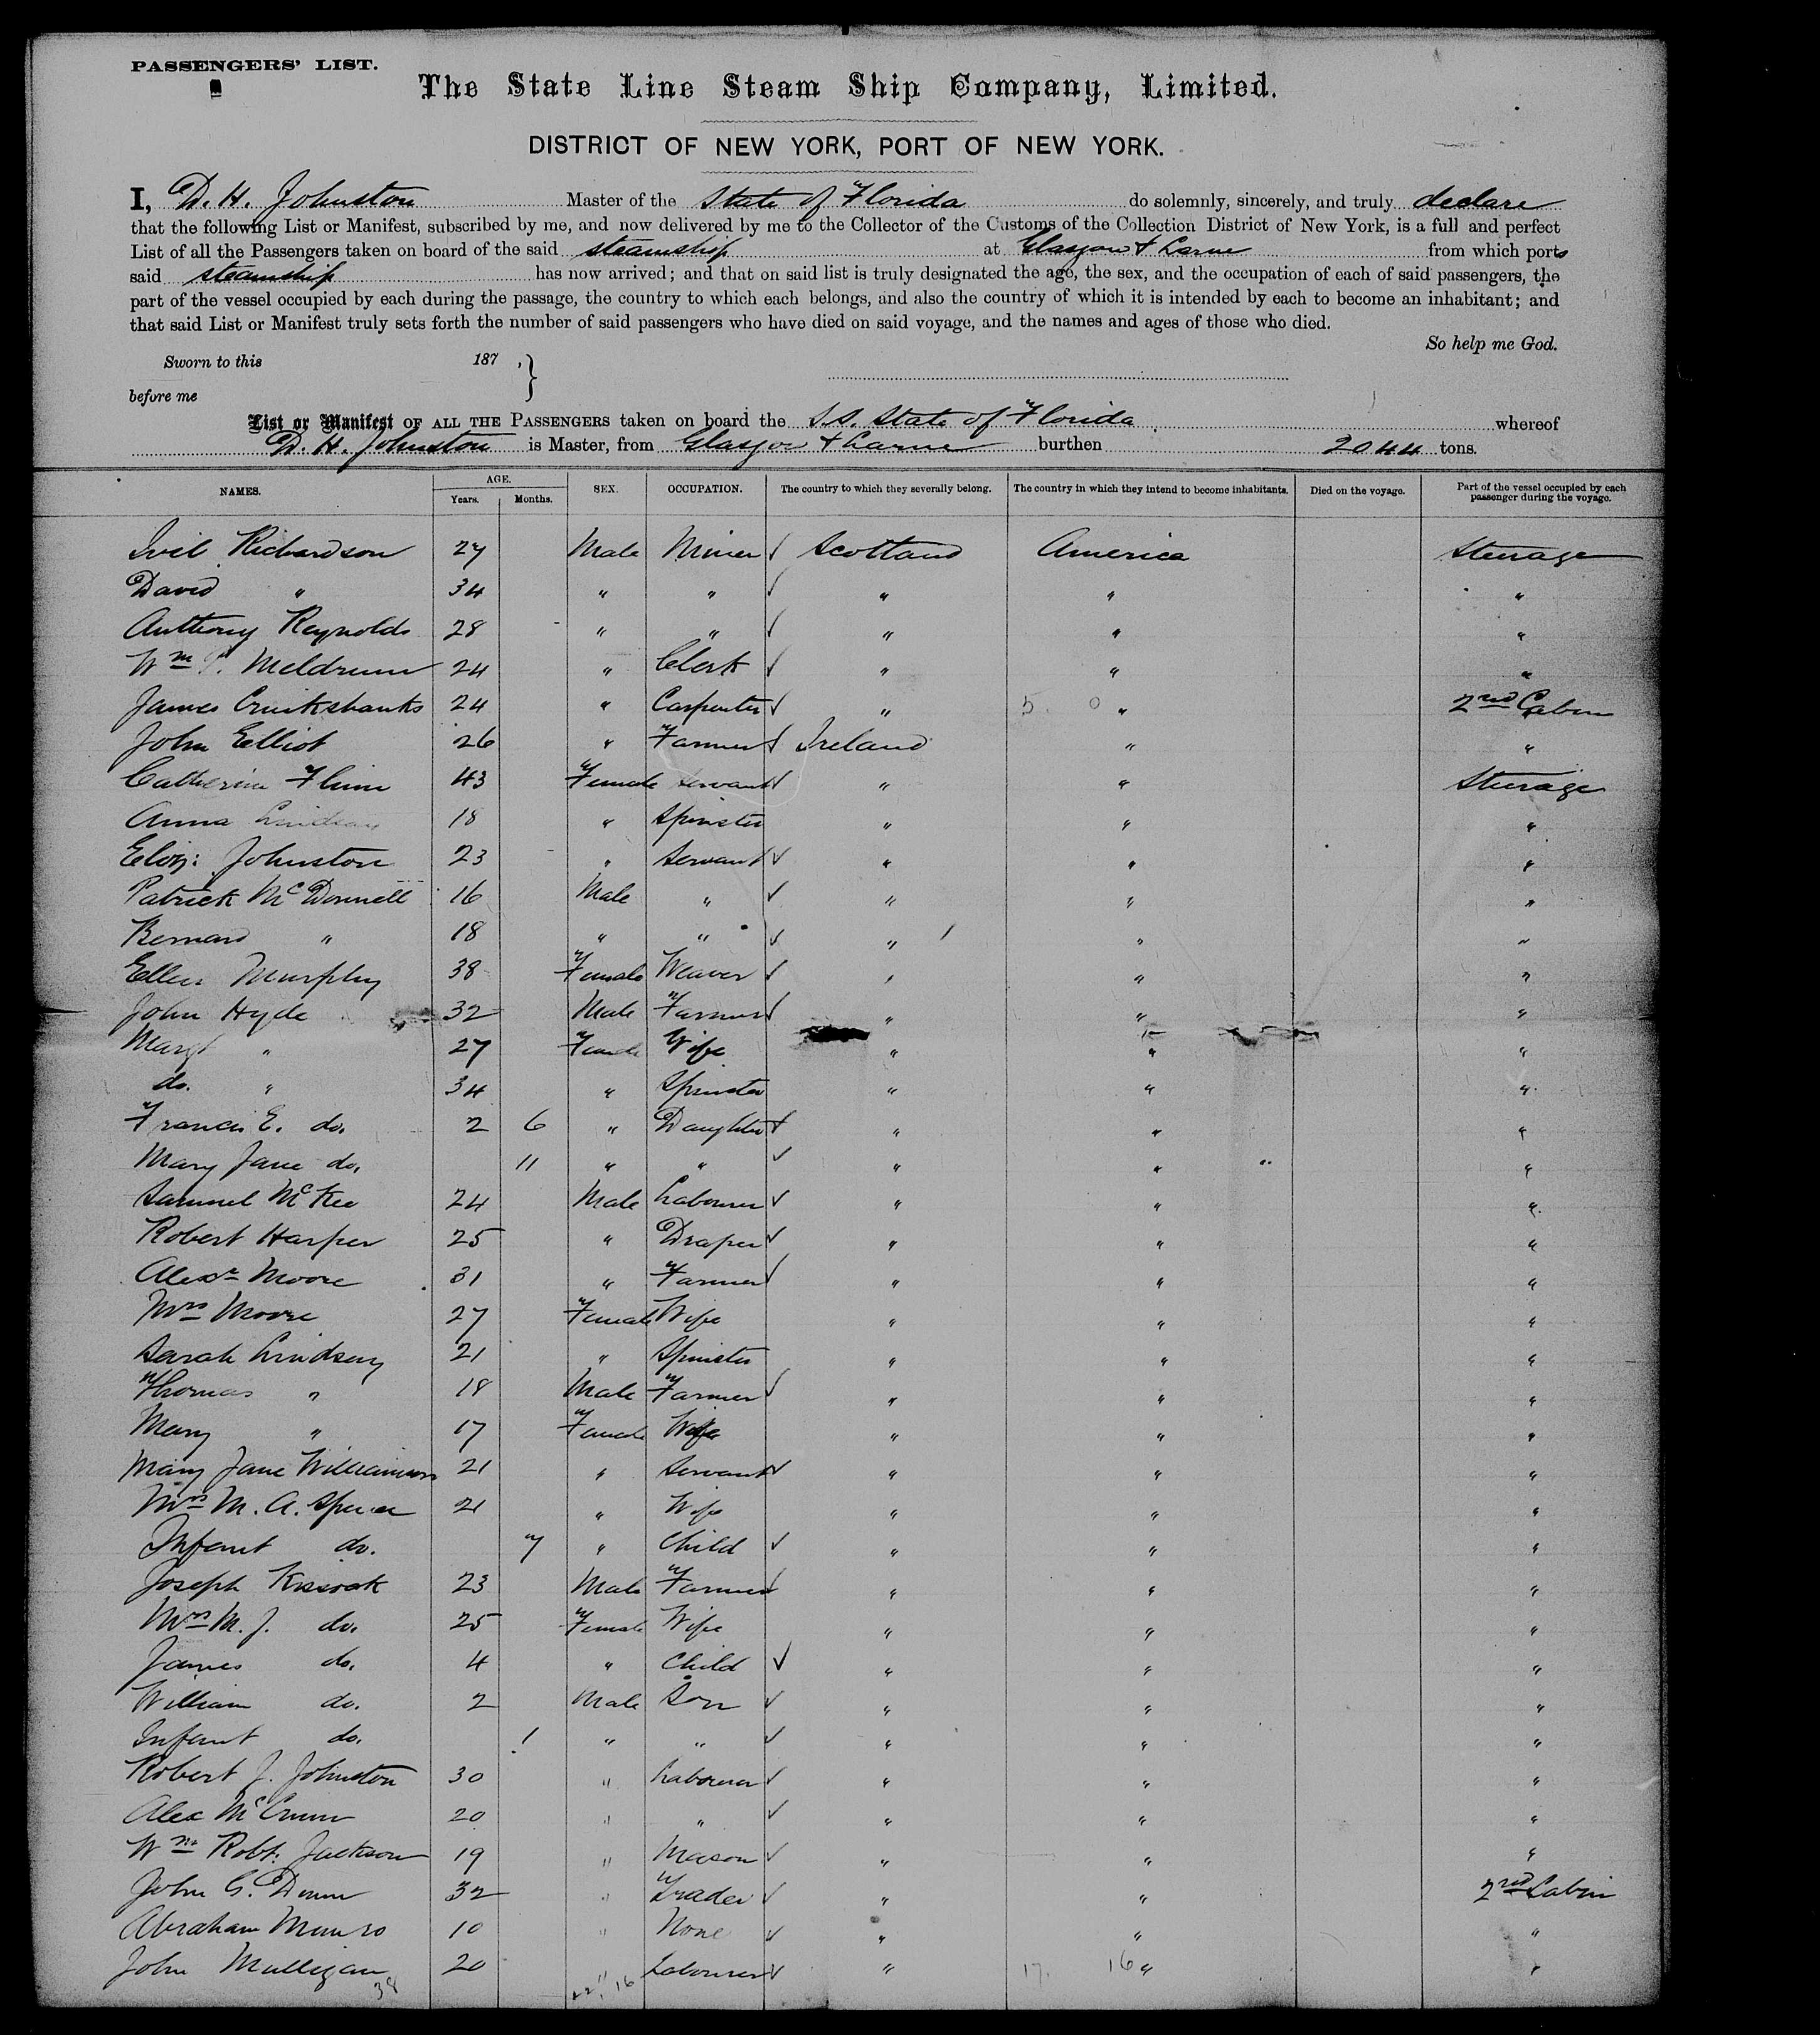 PASSENGERS' LIST.
The State Line Steam Ship Company, Limited.
DISTRICT OF NEW YORK, PORT OF NEW YORK.
I, D. H. Johnston Master of the State of Florida do solemnly, sincerely, and truly declare
that the following List or Manifest, subscribed by me, and now delivered by me to the Collector of the Customs of the Collection District of New York, is a full and perfect
List of all the Passengers taken on board of the said steamship at Glasgow & Larne from which ports
said steamship has now arrived; and that on said list is truly designated the age, the sex, and the occupation of each of said passengers, the
part of the vessel occupied by each during the passage, the country to which each belongs, and also the country of which it is intended by each to become an inhabitant; and
that said List or Manifest truly sets forth the number of said passengers who have died on said voyage, and the names and ages of those who died.
So help me God.
Sworn to this 187 ,
before me
List or Manifest OF ALL THE PASSENGERS taken on board the S.S. State of Florida whereof
D. H. Johnston is Master, from Glasgow & Larne burthen 2044 tons.
NAMES. AGE. Years. Months. SEX. OCCUPATION. The country to which they severally belong. The country in which they intend to become inhabitants. Died on the voyage. Part of the vessel occupied by each passenger during the voyage.
Richardson 27 Male Miner Scotland America Steerage
David " 34 " " " " "
Anthony Reynolds 28 " " " " "
Wm Meldrum 24 " Clerk " " "
James Cruikshanks 24 " Carpenter " " 2nd Cabin
John Elliot 26 " Farmer Ireland " "
Catherine Flinn 43 Female Servant " " Steerage
Anna Lindsay 18 " Spinster " " "
Eliz: Johnston 23 " Servant " " "
Patrick McDonnell 16 Male " " " "
Bernard " 18 " " " " "
Ellen Murphy 38 Female Weaver " " "
John Hyde 32 Male Farmer " " "
Margt " 27 Female Wife " " "
do. " 34 " Spinster " " "
Francis E. do. 2 6 " Daughter " " "
Mary Jane do. 11 " " " " "
Samuel McKee 24 Male Labourer " " "
Robert Harper 25 " Draper " " "
Alexr Moore 31 " Farmer " " "
Mrs Moore 27 Female Wife " " "
Sarah Lindsay 21 " Spinster " " "
Thomas " 18 Male Farmer " " "
Mary " 17 Female Wife " " "
Mary Jane Williamson 21 " Servant " " "
Mrs M. A. Spencer 21 " Wife " " "
Infant do. 7 " Child " " "
Joseph 23 Male Farmer " " "
Mrs M. J. do. 25 Female Wife " " "
James do. 4 " Child " " "
William do. 2 Male Son " " "
Infant do. 1 " " " " "
Robert J. Johnston 30 " Labourer " " "
Alex 20 " " " " "
Wm Robt. Jackson 19 " Mason " " "
John G. 32 " Trader " " 2nd Cabin
Abraham Munro 10 " None " " "
John Mulligan 20 " Labourer " " "
38 22 16 17. 16